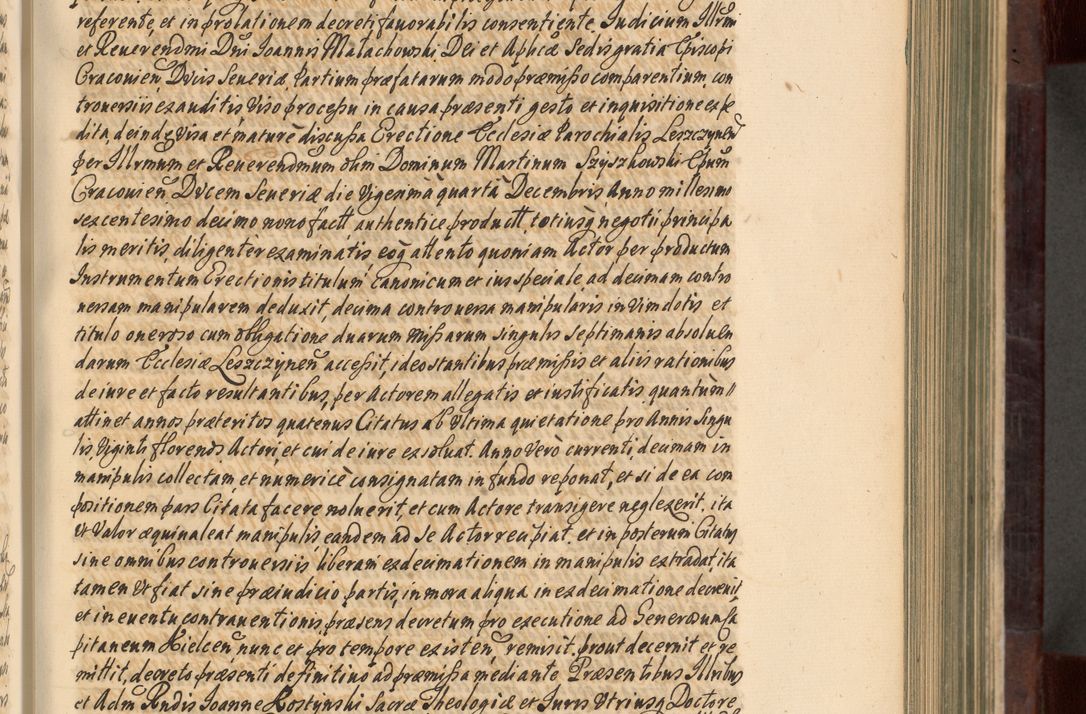 referente, et in prolationem decreti favorabilis consentiente. Iudicium Illrmi
et Reverendmi Dni Ioannis Małachowski Dei et Aplicæ Sedis gratia Episcopi
Cracovien, Ducis Severiæ Partium præfatarum modo præmisso comparentium, con
troversiis exauditis viso processu in causa præsenti gesto et inquisitione expe
dita, deinde visa et mature discussa Erectione Ecclesiæ Parochialis Leszczynen
per Illrmum et Reverendmum olim Dominum Martinum Szyszkowski Epum
Cracovien Ducem Severiæ die Vigesima quarta Decembris Anno millesimo
sexcentesimo decimo nono fact authentice product, totiusq negotii principa
lis meritis, diligenter examinatis eoq attento quoniam Actor per productum
Instrumentum Erectionis titulum canonicum et ius speciale ad decimam contro
versam manipularem deduxit, decima controversa manipularis in vim dotis et
titulo oneroso cum obligatione duarum missarum singulis septimanis absolven
darum Ecclesiæ Leszczynen accessit, ideo stantibus præmissis et aliis rationibus
de iure et facto resultantibus, per Actorem allegatis et iustificatis quantum
attinet annos præteritos quatenus Citatus ab ultima quietatione pro Annis singu
lis, Viginti florenos Actori, et cui de iure exsolvat. Anno vero currenti, decimam in
manipulis collectam et numerice consignatam in fundo reponat, et si de ea com
positionem pars Citata facere noluerit, et cum Actore transigere neglexerit, ita
ut valor æquivaleat manipulis eandem ad se Actor recipiat, et in posterum Citatus
sine omnibus controversiis liberam exdecimationem in manipulis extradat, ita
tamen ut fiat sine præiudicio partis, in mora aliqua in exdecimatione decrevit
et in eventu contraventionis, præsens decretum pro executione ad Generosum Ca
pitaneum Kielcen nunc et pro tempore existen remisit, prout decernit et re
mittit, decreto præsenti definitivo ad præmissa mediante Præsentibus Illribus
et Adm Rndis Ioanne Kostynski Sacræ Theologiæ et Iuris Utriusq Doctore